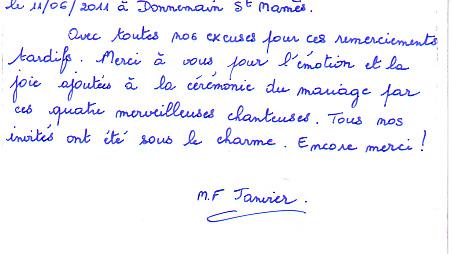 le 11/06/2011 à Donnemain St Mamès.
Avec toutes nos excuses pour ces remerciements
tardifs. Merci à vous pour l'émotion et la
joie ajoutées à la cérémonie du mariage par
ces quatre merveilleuses chanteuses. Tous nos
invités ont été sous le charme. Encore merci !
M.F Janvier.